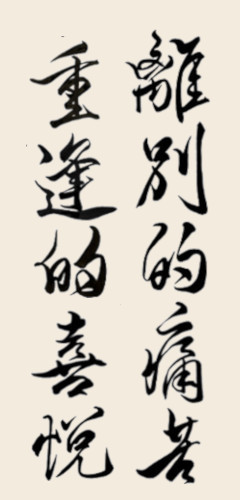 離別的痛苦
重逢的喜悅